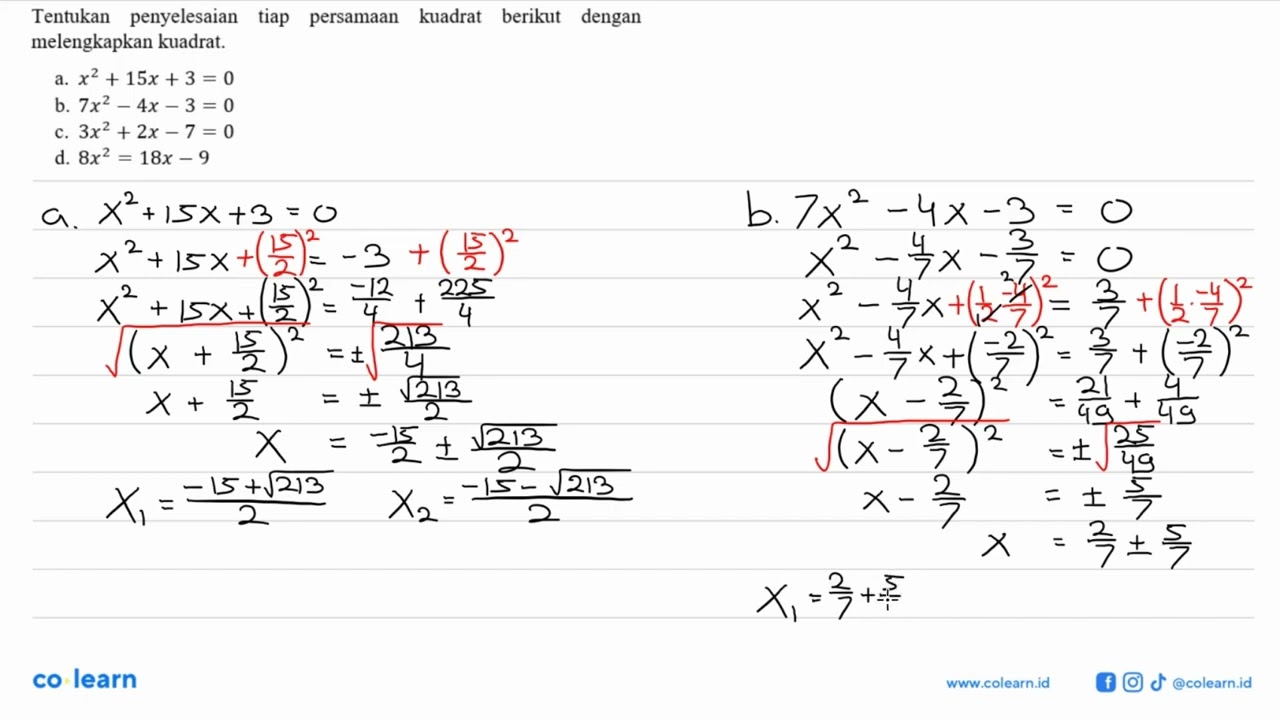 Tentukan penyelesaian tiap persamaan kuadrat berikut dengan
melengkapkan kuadrat.
a. x² + 15x + 3 = 0
b. 7x² − 4x − 3 = 0
c. 3x² + 2x − 7 = 0
d. 8x² = 18x − 9
a. x² + 15x + 3 = 0
x² + 15x + (15/2)² = -3 + (15/2)²
x² + 15x + (15/2)² = -12/4 + 225/4
√(x + 15/2)² = ±√213/4
x + 15/2 = ± √213/2
x = -15/2 ± √213/2
x₁ = -15+√213/2 x₂ = -15-√213/2
b. 7x² - 4x - 3 = 0
x² - 4/7x - 3/7 = 0
x² - 4/7x + (1/2 · -4/7)² = 3/7 + (1/2 · -4/7)²
x² - 4/7x + (-2/7)² = 3/7 + (-2/7)²
(x - 2/7)² = 21/49 + 4/49
√(x - 2/7)² = ±√25/49
x - 2/7 = ± 5/7
x = 2/7 ± 5/7
x₁ = 2/7 + 5
co learn
www.colearn.id
@colearn.id